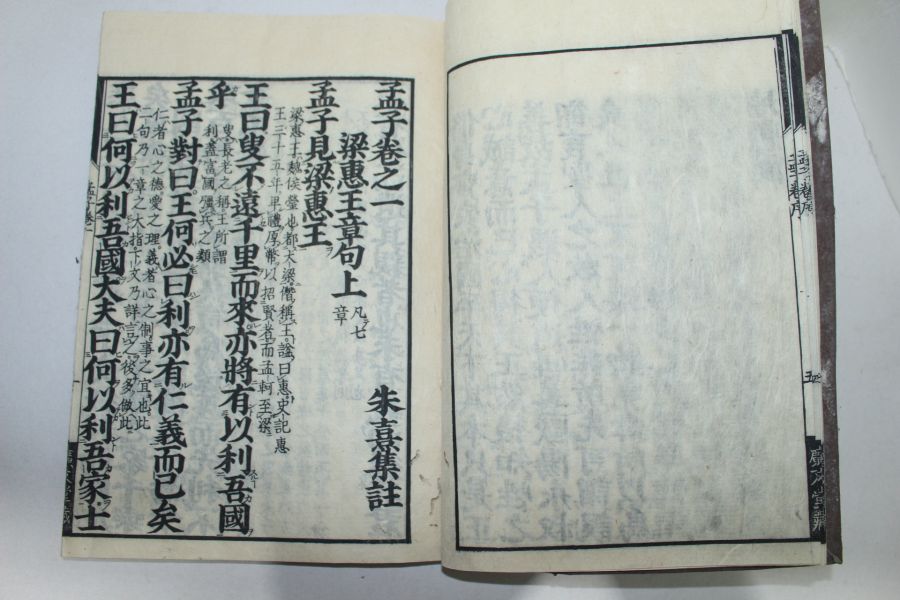 五
孟子卷之一 朱熹集註
梁惠王章句上 凡七
章
孟子見梁惠王
梁惠王魏侯罃也都大梁僭稱王謚曰惠史記惠
王三十五年卑禮厚幣以招賢者而孟軻至梁
王曰叟不遠千里而來亦將有以利吾國
乎
叟長老之稱王所謂
利蓋富國彊兵之類
孟子對曰王何必曰利亦有仁義而已矣
仁者心之德愛之理義者心之制事之宜也此
二句乃一章之大指下文乃詳言之後多倣此
王曰何以利吾國大夫曰何以利吾家士